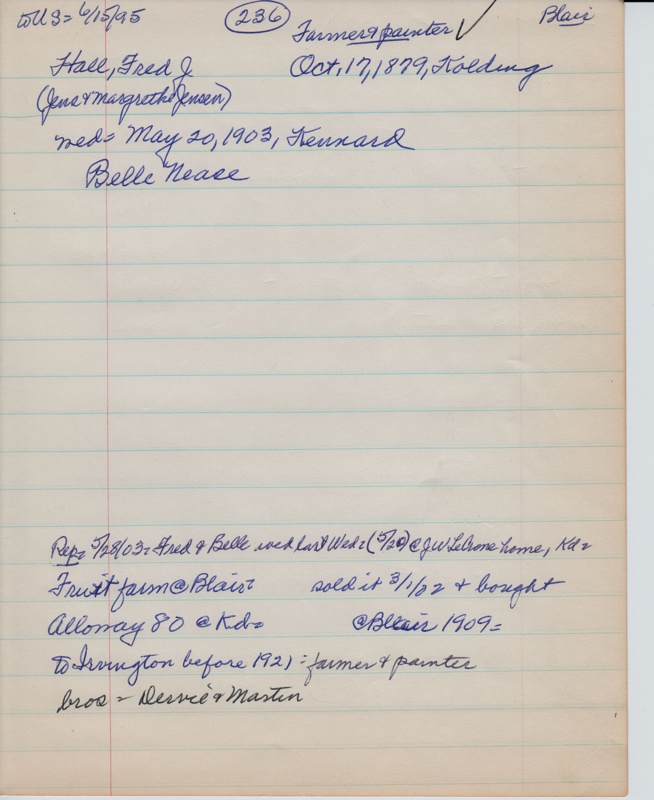 to U S = 6/15/95 (236) Farmer & painter ✓ Blair
Hall, Fred J Oct, 17, 1879, Kolding
(Jens & Margrethe Jensen)
wed = May 20, 1903, Kennard
Belle Nease
Rep = 5/28/03 = Fred & Belle wed last Wed = (5/20) @ JW LeCrone home, Kd =
Fruit farm @ Blair = sold it 3/1/02 & bought
Alloway 80 @ Kd = @ Blair 1909 =
to Irvington before 1921 = farmer & painter
bros = Dervie & Martin